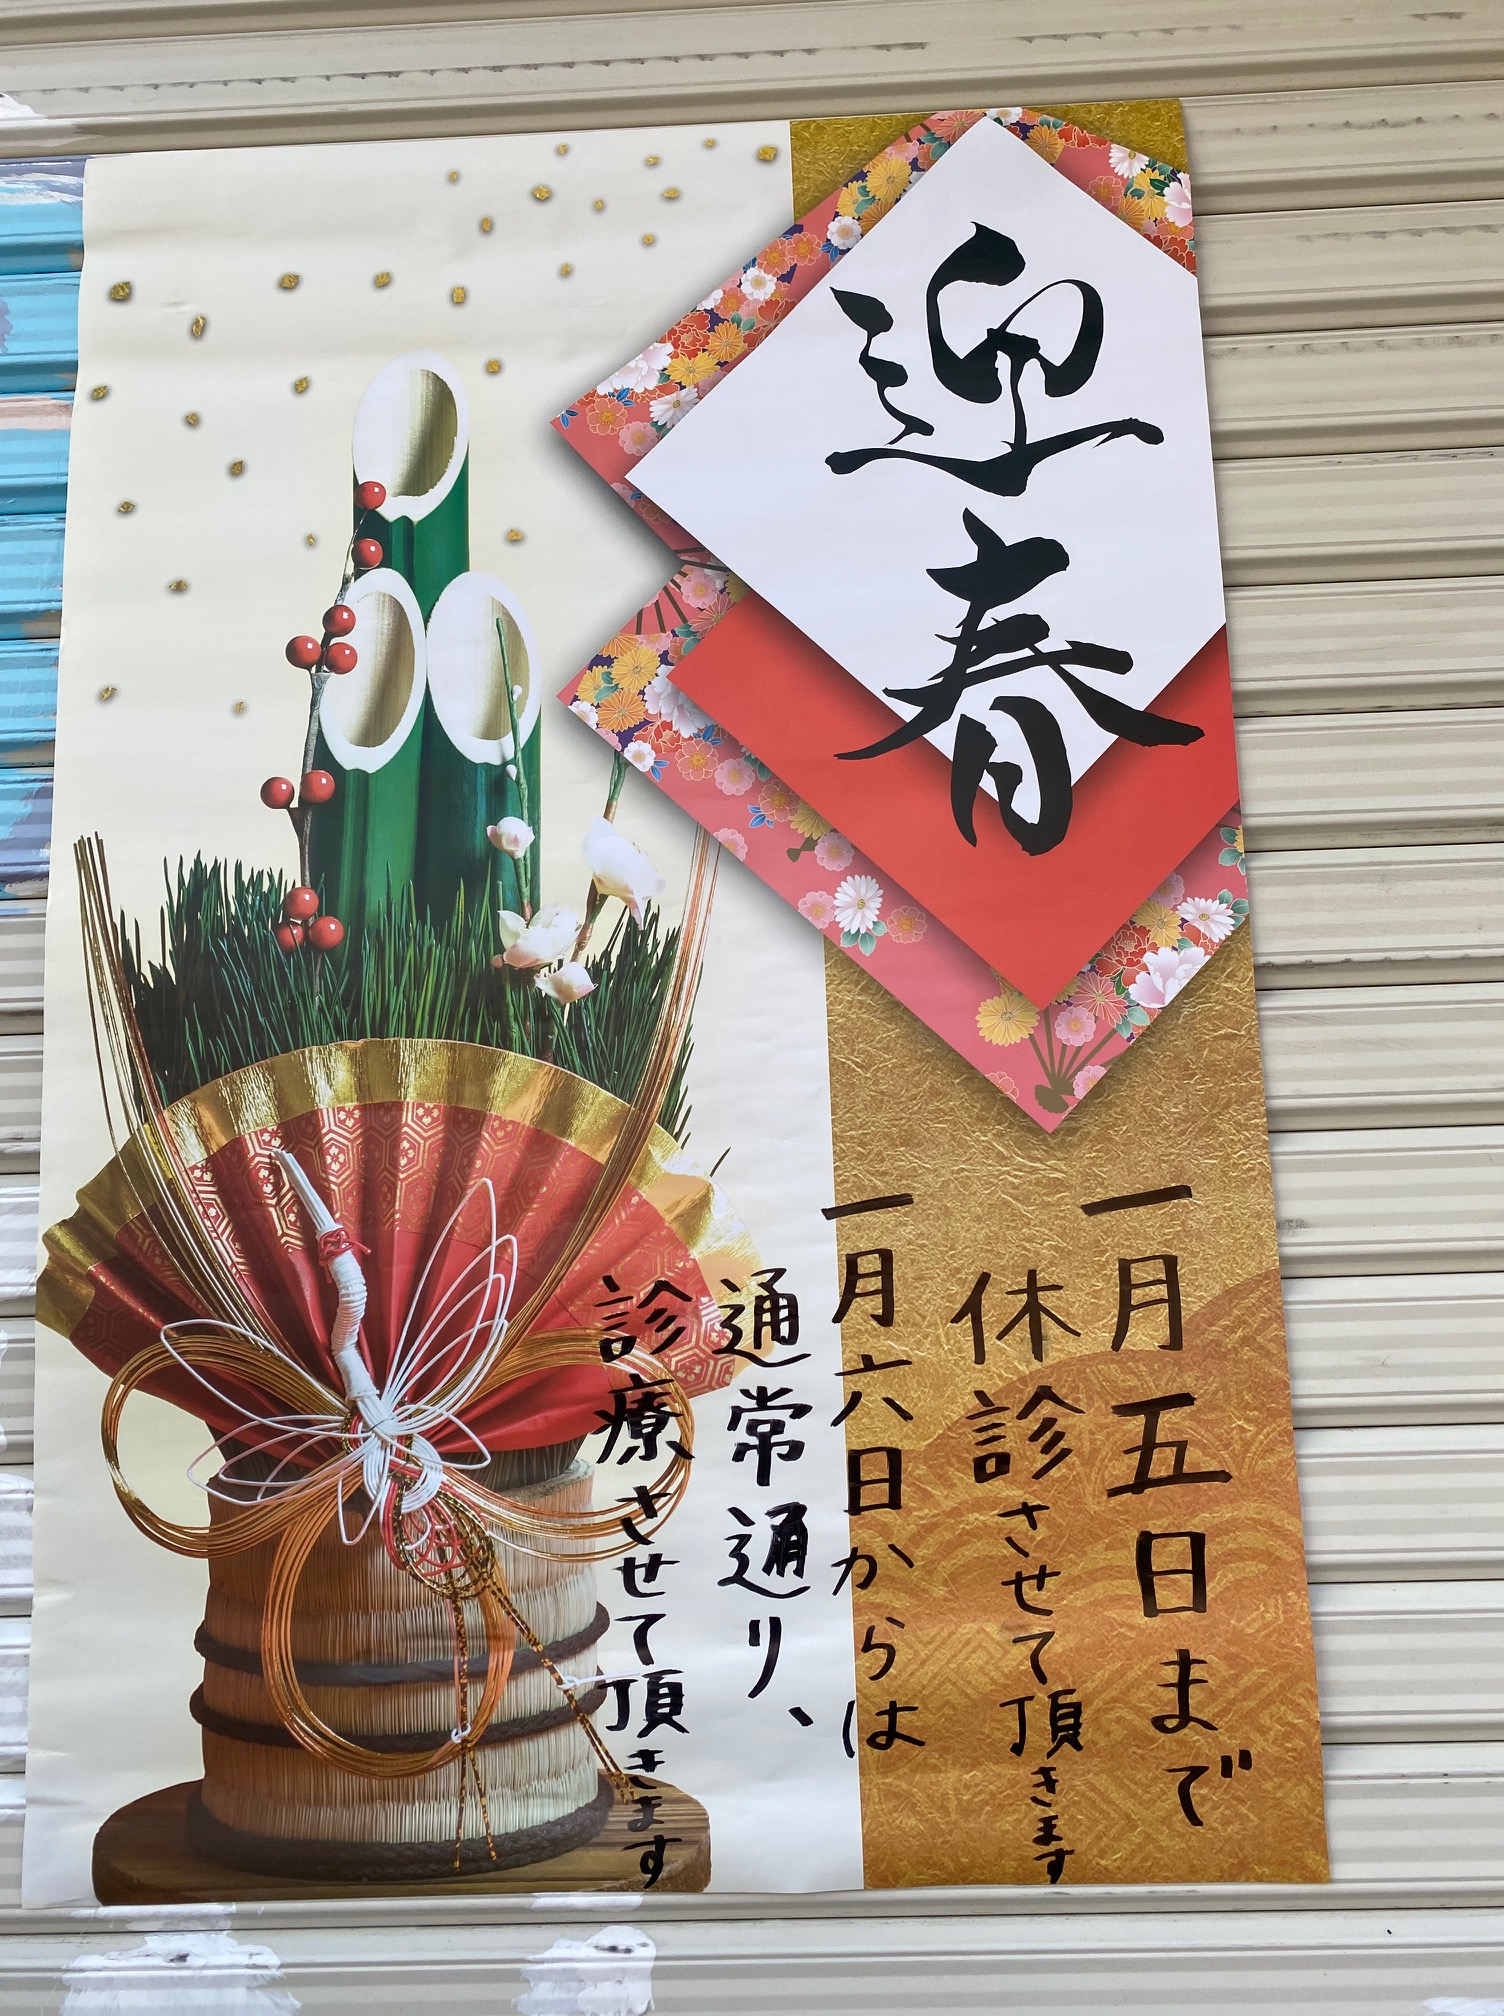 迎春
一月五日まで
休診させて頂きます
一月六日からは
通常通り、
診療させて頂きます